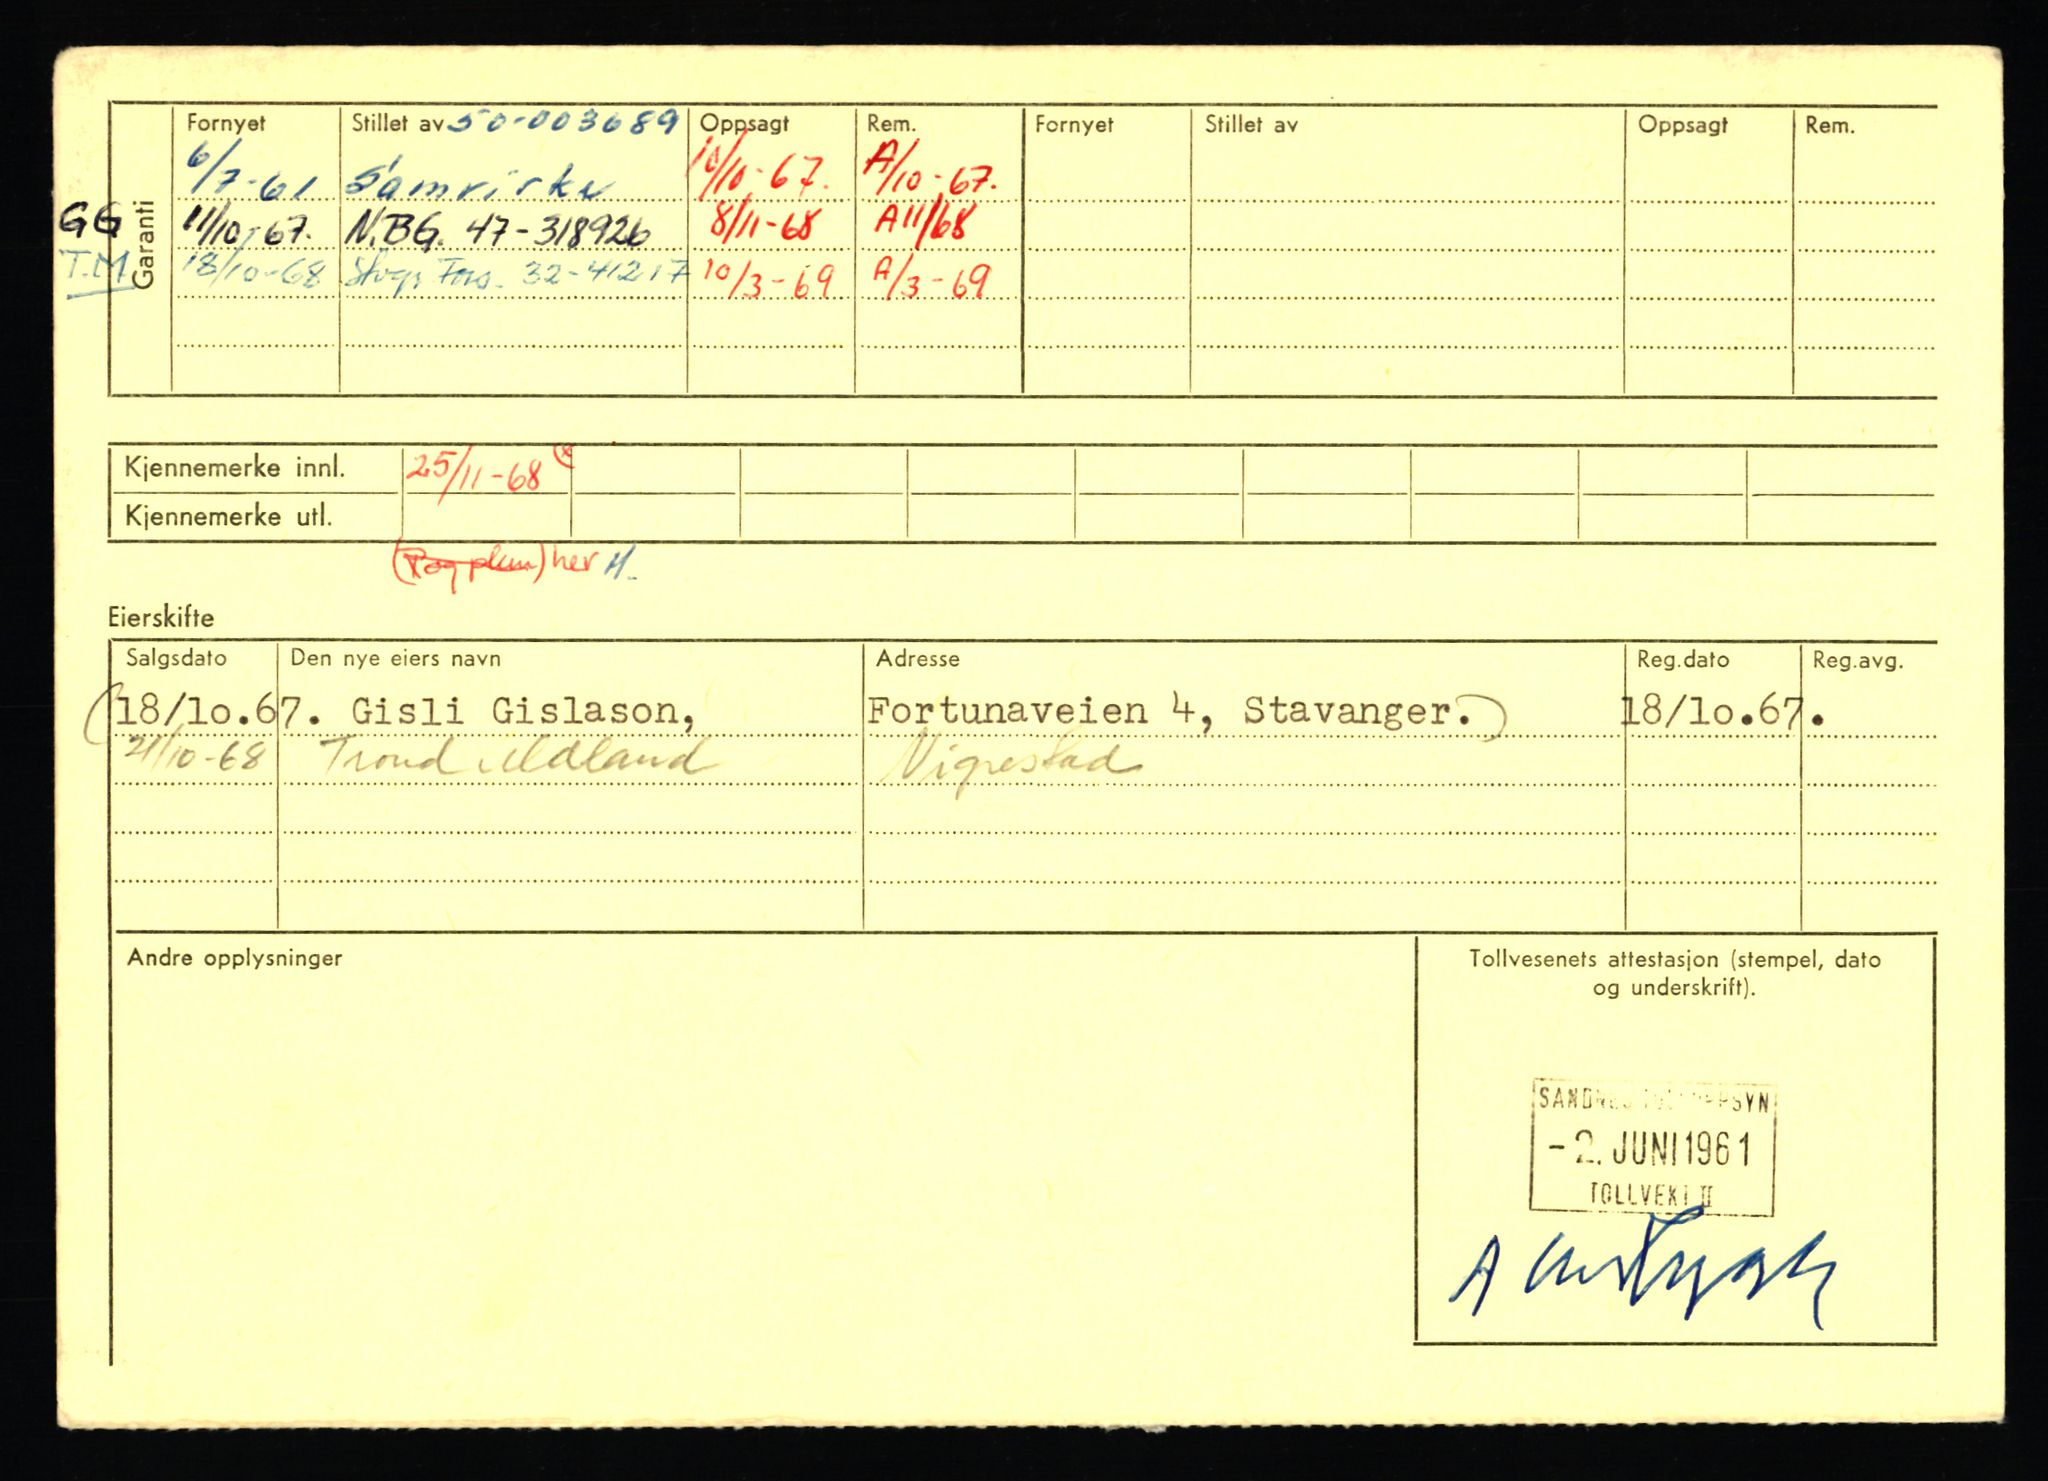 Fornyet Stillet av 50-003689 Oppsagt Rem. Fornyet Stillet av Oppsagt Rem.
Garanti
6/7-61 Samvirke 10/10-67. A/10-67.
GG 11/10-67. N.B.G. 47-318926 8/11-68 A11/68
T.M 18/10-68 32-41217 10/3-69 A/3-69
Kjennemerke innl. 25/11-68 (x
Kjennemerke utl.
her
Eierskifte
Salgsdato Den nye eiers navn Adresse Reg.dato Reg.avg.
(18/1o.67. Gisli Gislason, Fortunaveien 4, Stavanger.) 18/1o.67.
21/10-68 Trond Mdland
Andre opplysninger
Tollvesenets attestasjon (stempel, dato
og underskrift).
-2. JUNI 1961
TOLLVEKT II